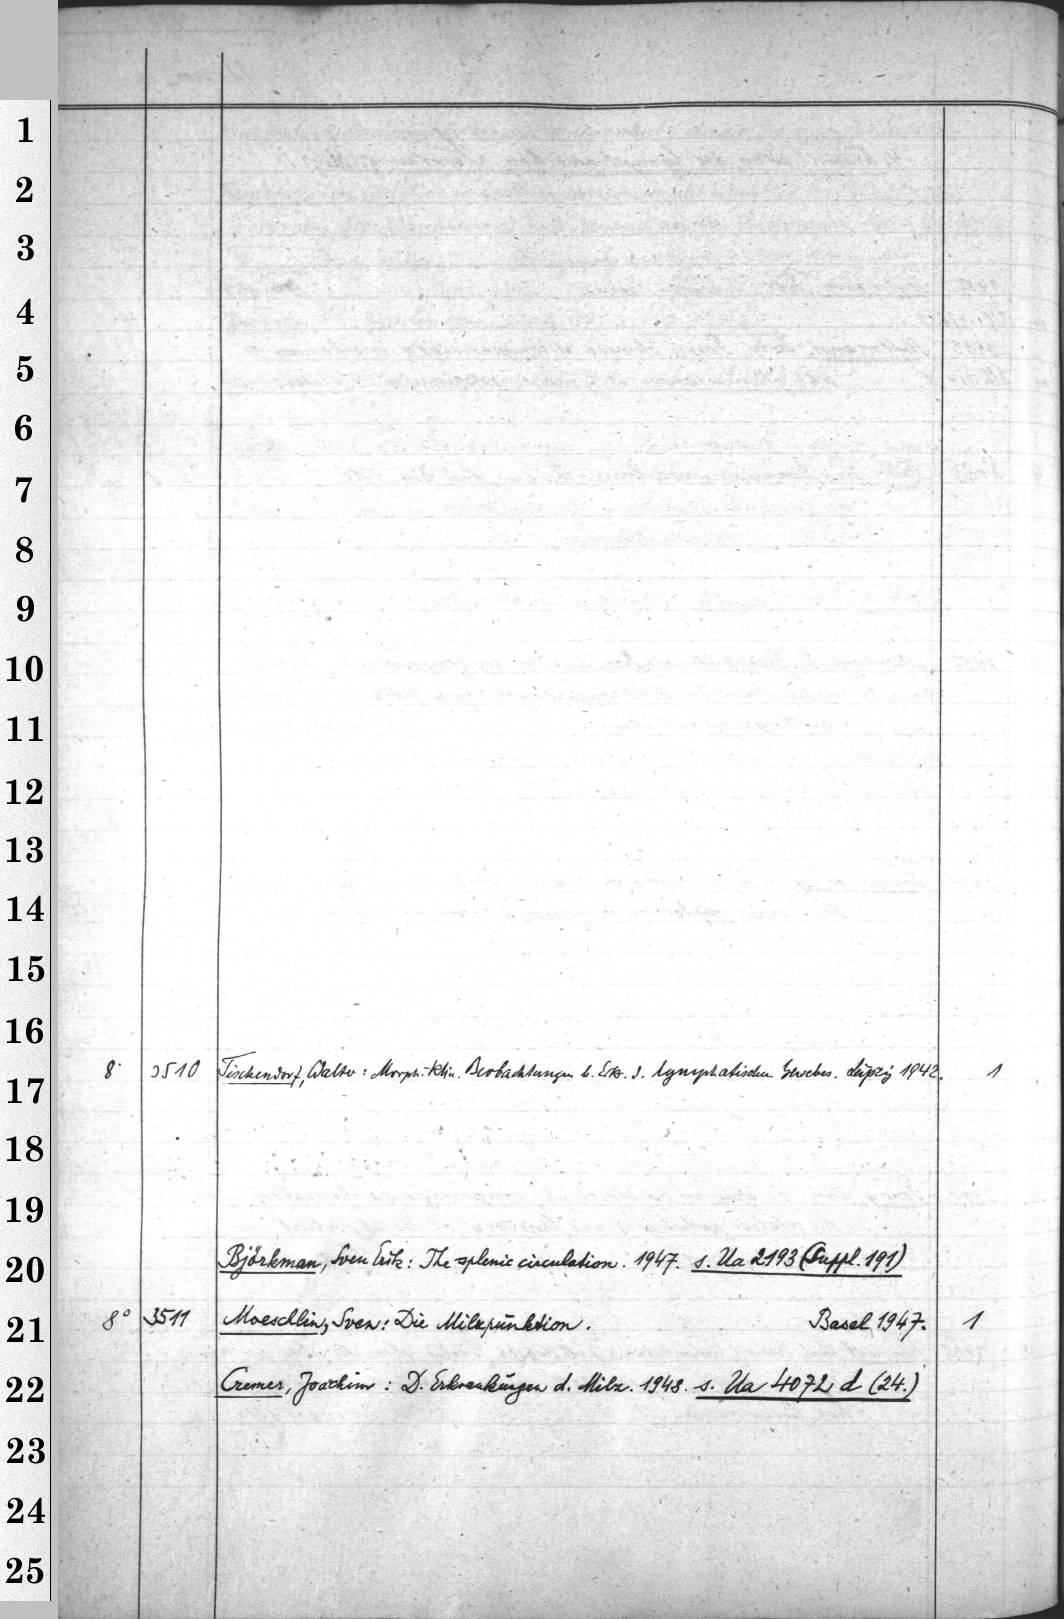 1
2
3
4
5
6
7
8
9
10
11
12
13
14
15
16
17 8° 3510 Tischendorf, Walter: Morph.-klin. Beobachtungen b. Erkr. d. lymphatischen Gewebes. Leipzig 1942. 1
18
19
20 Björkman, Sven Erik: The splenic circulation. 1947. s. Ua 2193 (Suppl. 191)
21 8° 3511 Moeschlin, Sven: Die Milzpunktion. Basel 1947. 1
22 Cremer, Joachim: D. Erkrankungen d. Milz. 1948. s. Ua 4072 d (24.)
23
24
25